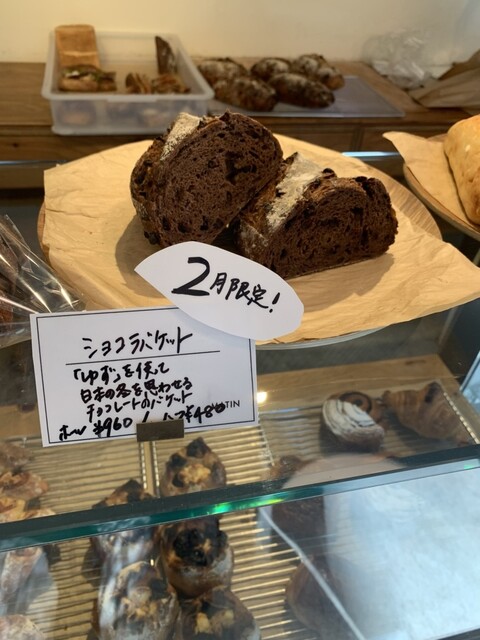 2月限定!
ショコラバゲット
「ゆず」を使って
日本の冬を思わせる
チョコレートのバゲット
ホール ¥960 / ハーフ ¥480